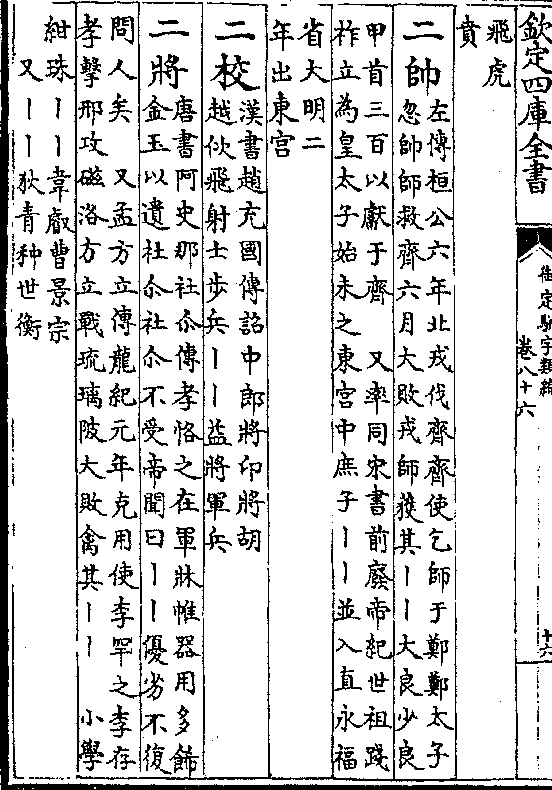 欽定四庫全書
御定駢字類編
卷八十六
十六
飛虎
賁
二帥
左傳桓公六年北戎伐齊齊使乞師于鄭鄭太子
忽帥師救齊六月大敗戎師獲其丨丨大良少良
甲首三百以獻于齊 又率同宋書前廢帝紀世祖踐
祚立為皇太子始未之東宮中庶子丨丨並入直永福
省大明二
年出東宮
二校
漢書趙充國傳詔中郎將印將胡
越佽飛射士步兵丨丨益將軍兵
二將
唐書阿史那社尒傳孝恪之在軍牀帷器用多飾
金玉以遺社尒社尒不受帝聞曰丨丨優劣不復
問人矣 又孟方立傳龍紀元年克用使李罕之李存
孝擊邢攻磁洛方立戰琉璃陂大敗禽其丨丨 小學
紺珠丨丨韋叡曹景宗
又丨丨狄青种世衡